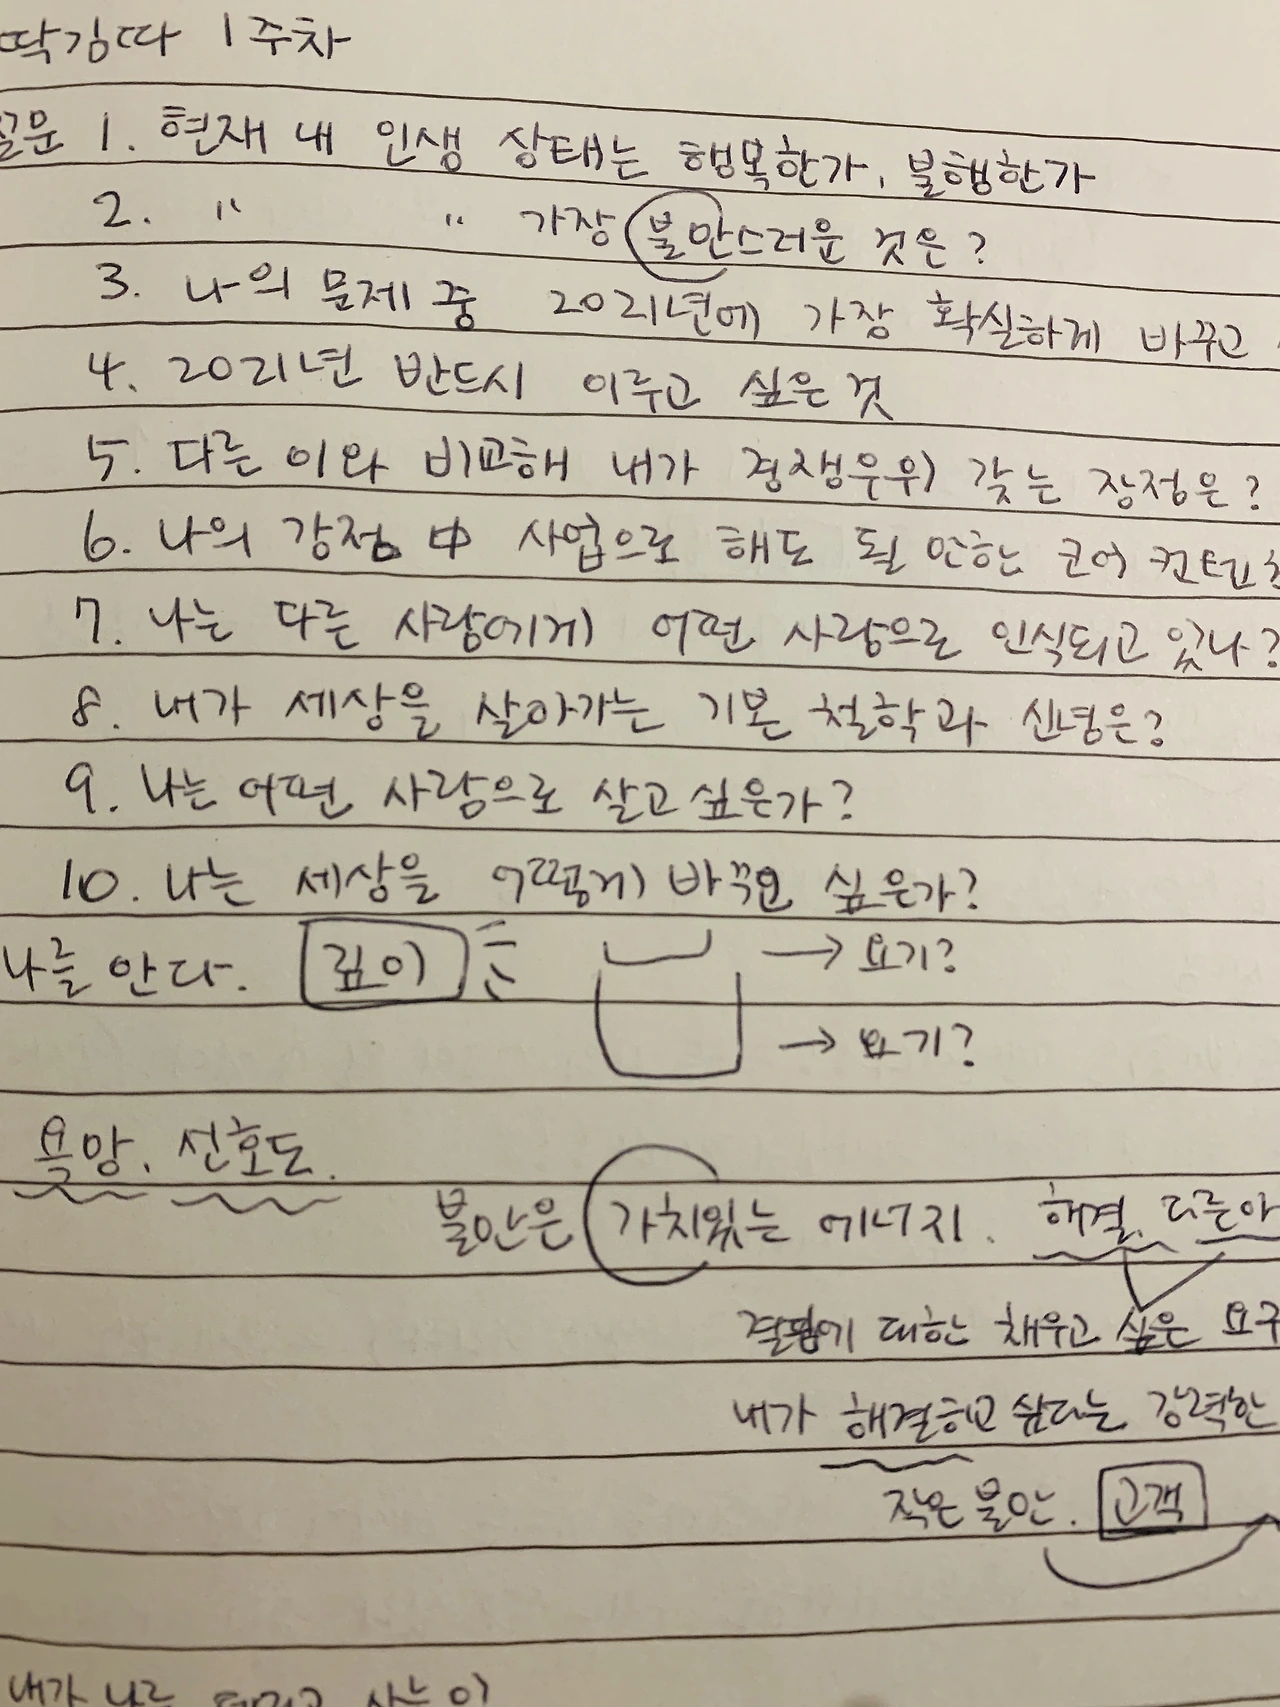 딱김따 1주차
질문 1. 현재 내 인생 상태는 행복한가, 불행한가
2. " " 가장 불안스러운 것은?
3. 나의 문제 중 2021년에 가장 확실하게 바꾸고
4. 2021년 반드시 이루고 싶은 것
5. 다른 이와 비교해 내가 경쟁우위 갖는 장점은?
6. 나의 강점 中 사업으로 해도 될 만한 코어 컨텐츠
7. 나는 다른 사람에게 어떤 사람으로 인식되고 있나?
8. 내가 세상을 살아가는 기본 철학과 신념은?
9. 나는 어떤 사람으로 살고 싶은가?
10. 나는 세상을 어떻게 바꾸고 싶은가?
나를 안다. 깊이 → 요기?
→ 요기?
욕망. 선호도.
불안은 가치있는 에너지. 해결. 다른
결핍에 대한 채우고 싶은 요구
내가 해결하고 싶다는 강력한
작은 불안. 고객
내가 나를